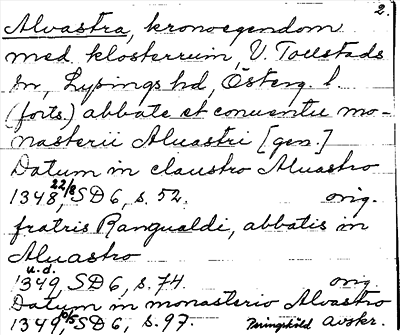 2.
Alvastra, kronoegendom
med klosterruin, V. Tollstads
sn, Lysings hd, Österg. l
(forts.) abbate et conuentu mo-
nasterii Aluastri [gen.]
Datum in claustro Aluastro
1348 22/8, SD 6, s. 52. orig.
fratris Rangualdi, abbatis in
Aluastro
1349 u.d., SD 6, s. 74. orig.
Datum in monasterio Alvastro
1349 /5, SD 6, s. 97. Peringskiöld Avskr.